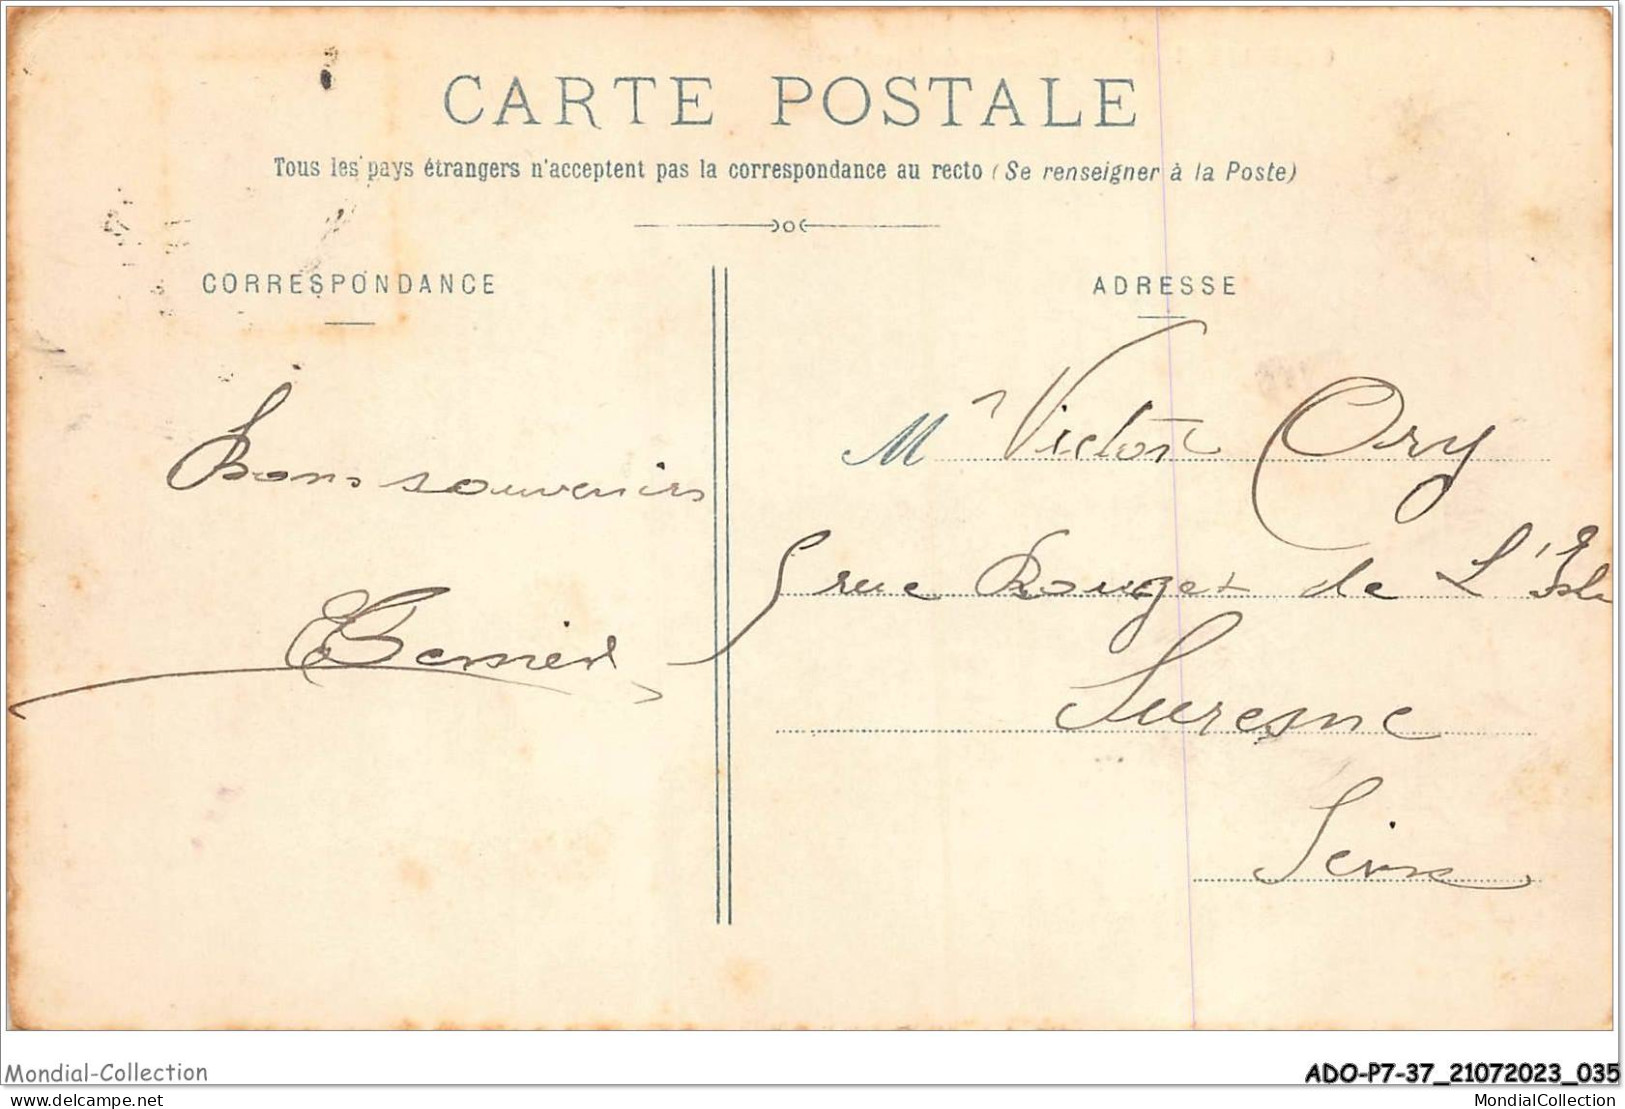 CARTE POSTALE
Tous les pays étrangers n'acceptent pas la correspondance au recto (Se renseigner à la Poste)
CORRESPONDANCE
ADRESSE
Bons souvenirs
Mr Victor Ory
5 rue Rouget de L'Isle
Suresne
Seine
Mondial-Collection
ADO-P7-37_21072023_035
delcampe.net
MondialCollection